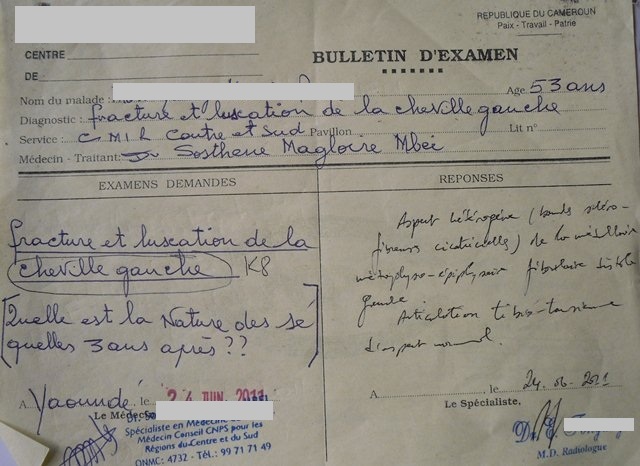 REPUBLIQUE DU CAMEROUN
Paix - Travail - Patrie
CENTRE
DE :
BULLETIN D'EXAMEN
Nom du malade : Age 53 ans
Diagnostic : fracture et luxcation de la cheville gauche
Service : C M I R Centre et Sud Pavillon Lit n°
Médecin - Traitant: Dr Sosthene Magloire Mbei
EXAMENS DEMANDES
REPONSES
fracture et luxcation de la
cheville gauche K8
[Quelle est la Nature des sé
quelles 3 ans après ??]
Aspect hétérogène (bands scléro-
fibreuses cicatricielles) de la médullaire
métaphyso-épiphysaire fibulaire distale
gauche.
Articulation tibio-tarsienne
d'aspect normal.
A Yaoundé, le 24 JUN. 2011
Le Médecin
Spécialiste en Médecine
Médecin Conseil CNPS pour les
Régions du Centre et du Sud
ONMC: 4732 - Tél.: 99 71 71 49
A , le 24-06-2011
Le Spécialiste.
M.D. Radiologue